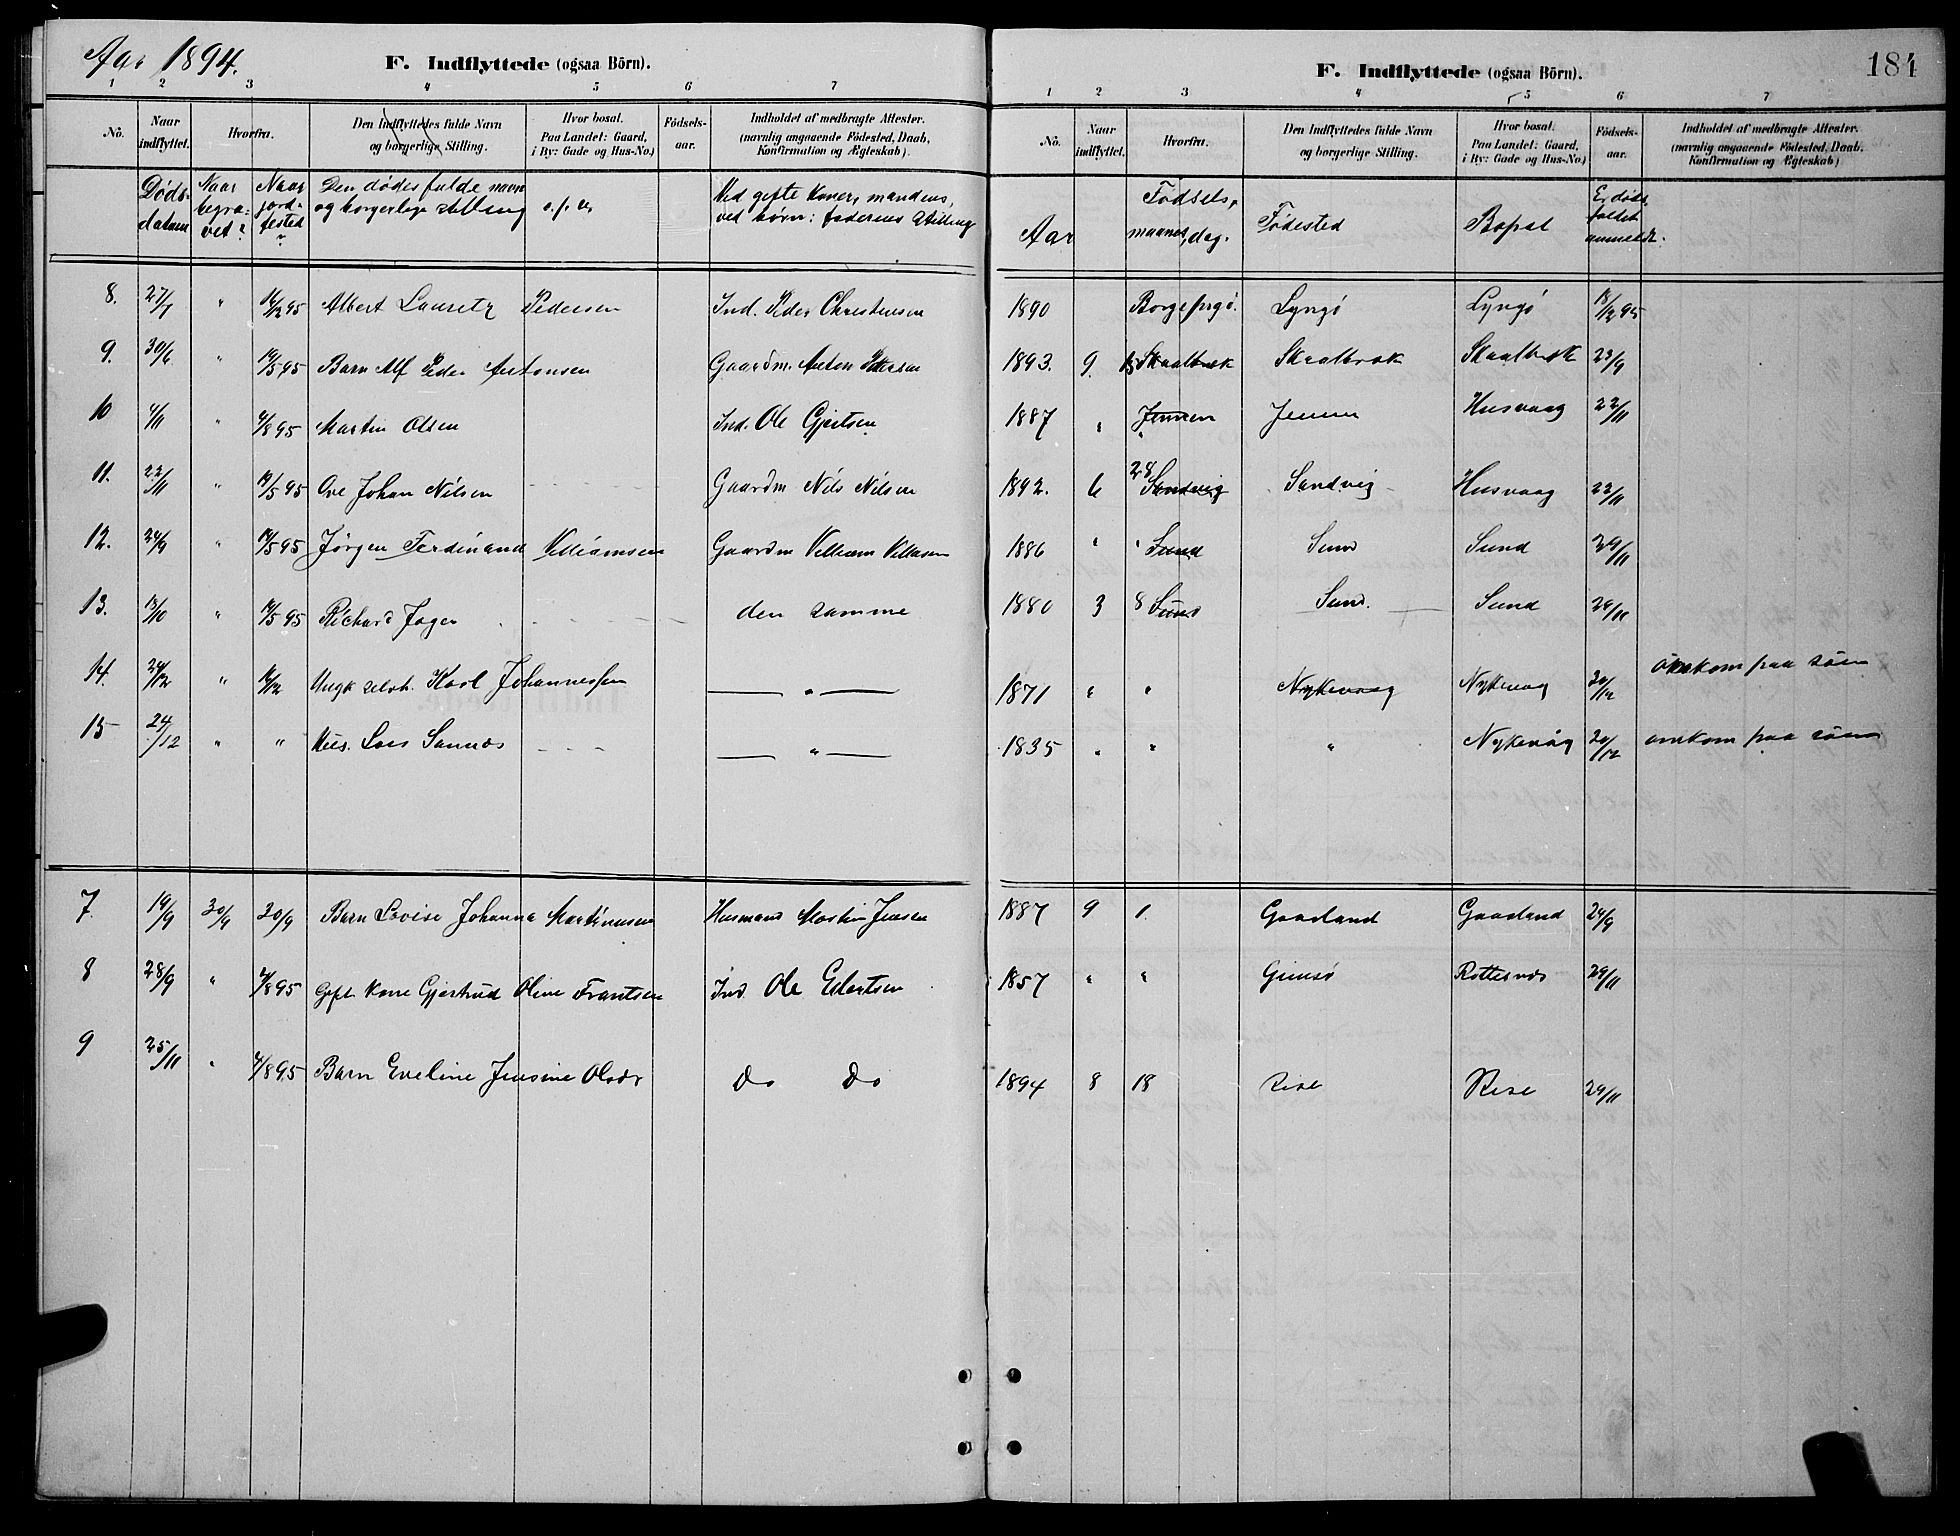 Aar 1894.
F. Indflyttede (ogsaa Börn).
1 2 3 4 5 6 7
No. Naar indflyttet. Hvorfra. Den Indflyttedes fulde Navn og borgerlige Stilling. Hvor bosat. Paa Landet: Gaard, i By: Gade og Hus-No.) Födsels-aar. Indholdet af medbragte Attester. (navnlig angaaende Födested, Daab, Konfirmation og Ægteskab).
Døds-datum Naar begra-vet? Naar jord-fested? Den dødes fulde navn og borgerlige stilling o.s.v. Ved gifte koner, mandens, ved børn: faderens stilling
8. 27/7 " 16/12 95 Albert Lauretz Pedersen Ind. Peder Christensen
9. 30/6 " 19/5 95 Barn Alf Peder Antonsen Gaardm. Anton
10 4/11 " 4/8 95 Martin Olsen Ind. Ole Gjertsen
11. 22/11 " 19/5 95 Ove Johan Nilsen Gaardm Nils Nilsen
12. 24/9 " 19/5 95 Jørgen Ferdinand Villiamsen Gaardm Villiam
13. 13/10 " 19/5 95 Richard den samme
14. 24/12 " Ungk selvst. Karl Johannessen — " —
15 24/12 " " — " —
7. 19/9 30/9 30/9 Barn Lovise Johanna Martinusen Husmand Martin Jensen
8 28/9 " 4/8 95 Gift kone Gjertrud Oline Frantsen Ind Ole Edertsen
9 25/11 " 4/8 95 Barn Eveline Jensine Olsdr Do Do
F. Indflyttede (ogsaa Börn).
184
1 2 3 4 5 6 7
No. Naar indflyttet. Hvorfra. Den Indflyttedes fulde Navn og borgerlige Stilling. Hvor bosat. Paa Landet: Gaard, i By: Gade og Hus-No.) Födsels-aar. Indholdet af medbragte Attester. (navnlig angaaende Födested, Daab, Konfirmation og Ægteskab)
Aar Fødsels, maaned, dag. Fødested Bopæl Er døds-faldet anmeldt.
1890 Lyngø Lyngø 18/12 95
1893. 9. 15 Skaalbrok Skaalbrok Skaalbrok 23/9
1887 " Jennen Jennen Husvaag 22/11
1892. 6 28 Sandvig Sandvig Husvaag 22/11
1886 " " Sund Sund Sund 29/11
1880 3 8 Sund Sund. Sund 29/11
1871 " " Nykvaag Nykvaag omkom paa søen
1835 " " " Nykvaag omkom paa søen
1887 9 1. Gaasland Gaasland 24/9
1857 " " Gimsø Rottesnæs 29/11
1894 8 18 Rise Rise 29/11